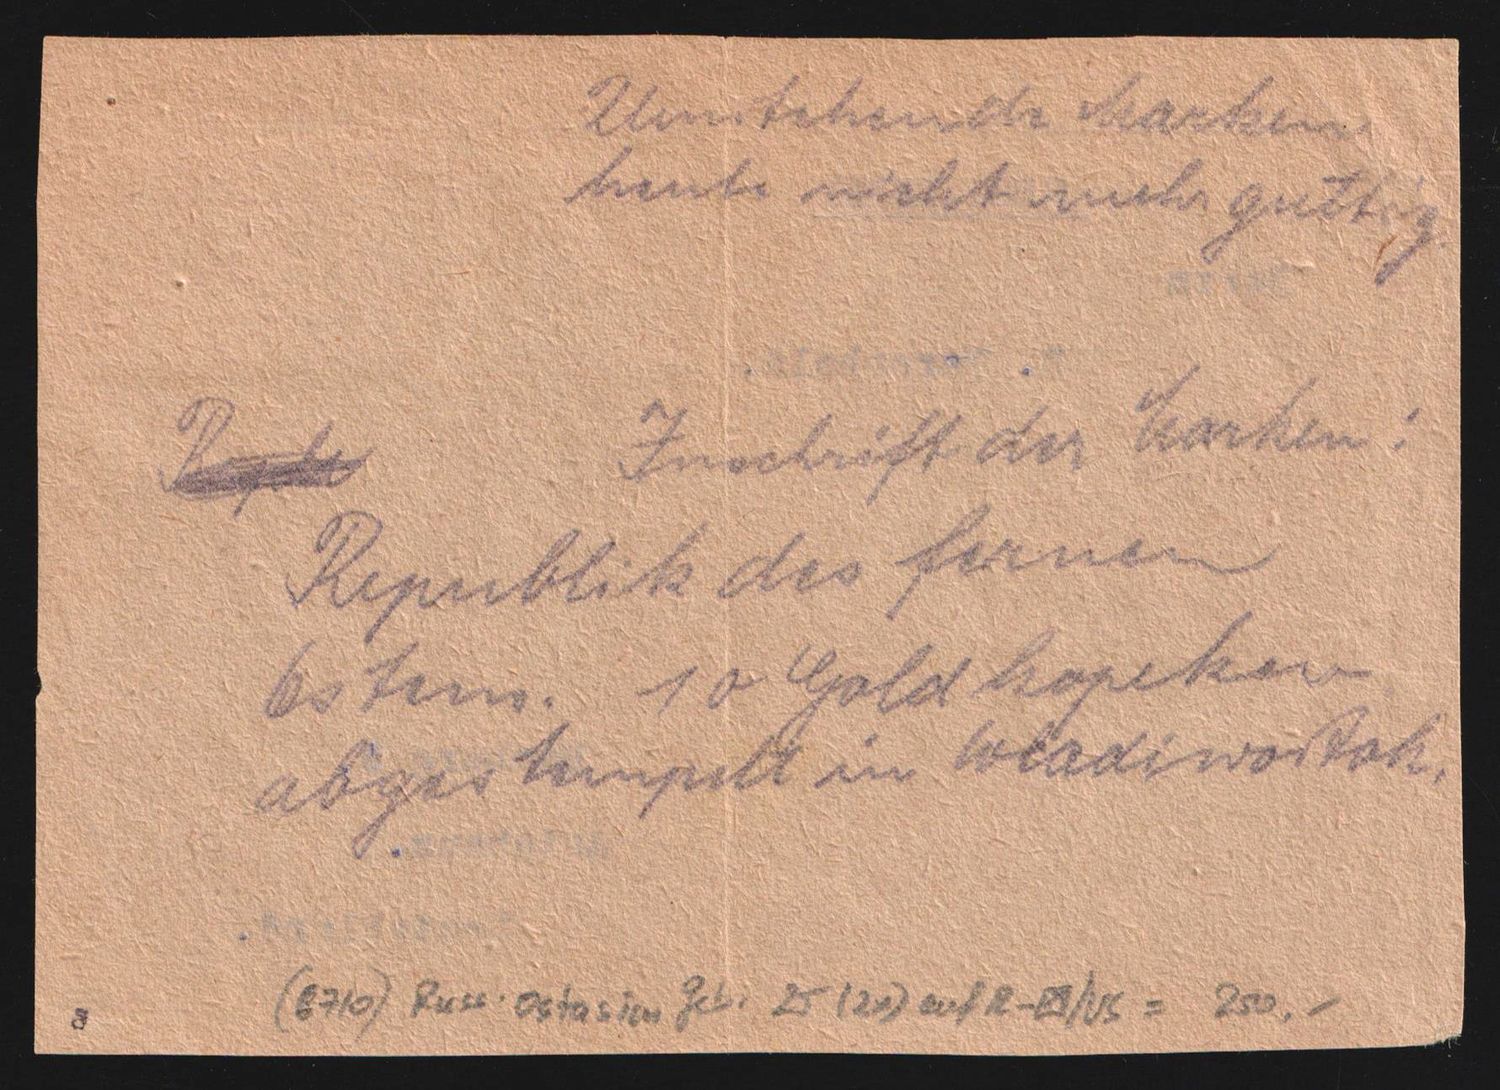 Umstehende Marken
heute nicht mehr gültig.
Inschrift der Marken:
Republik des fernen
Ostens. 10 Goldkopeken
abgestempelt in Wladiwostok.
(8710) Russ. Ostasien Geb. 25 (20) auf R- = 250,-